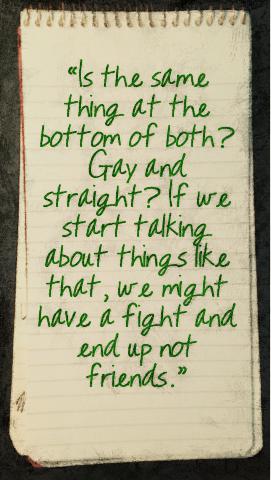 “Is the same
thing at the
bottom of both?
Gay and
straight? If we
start talking
about things like
that, we might
have a fight and
end up not
friends.”